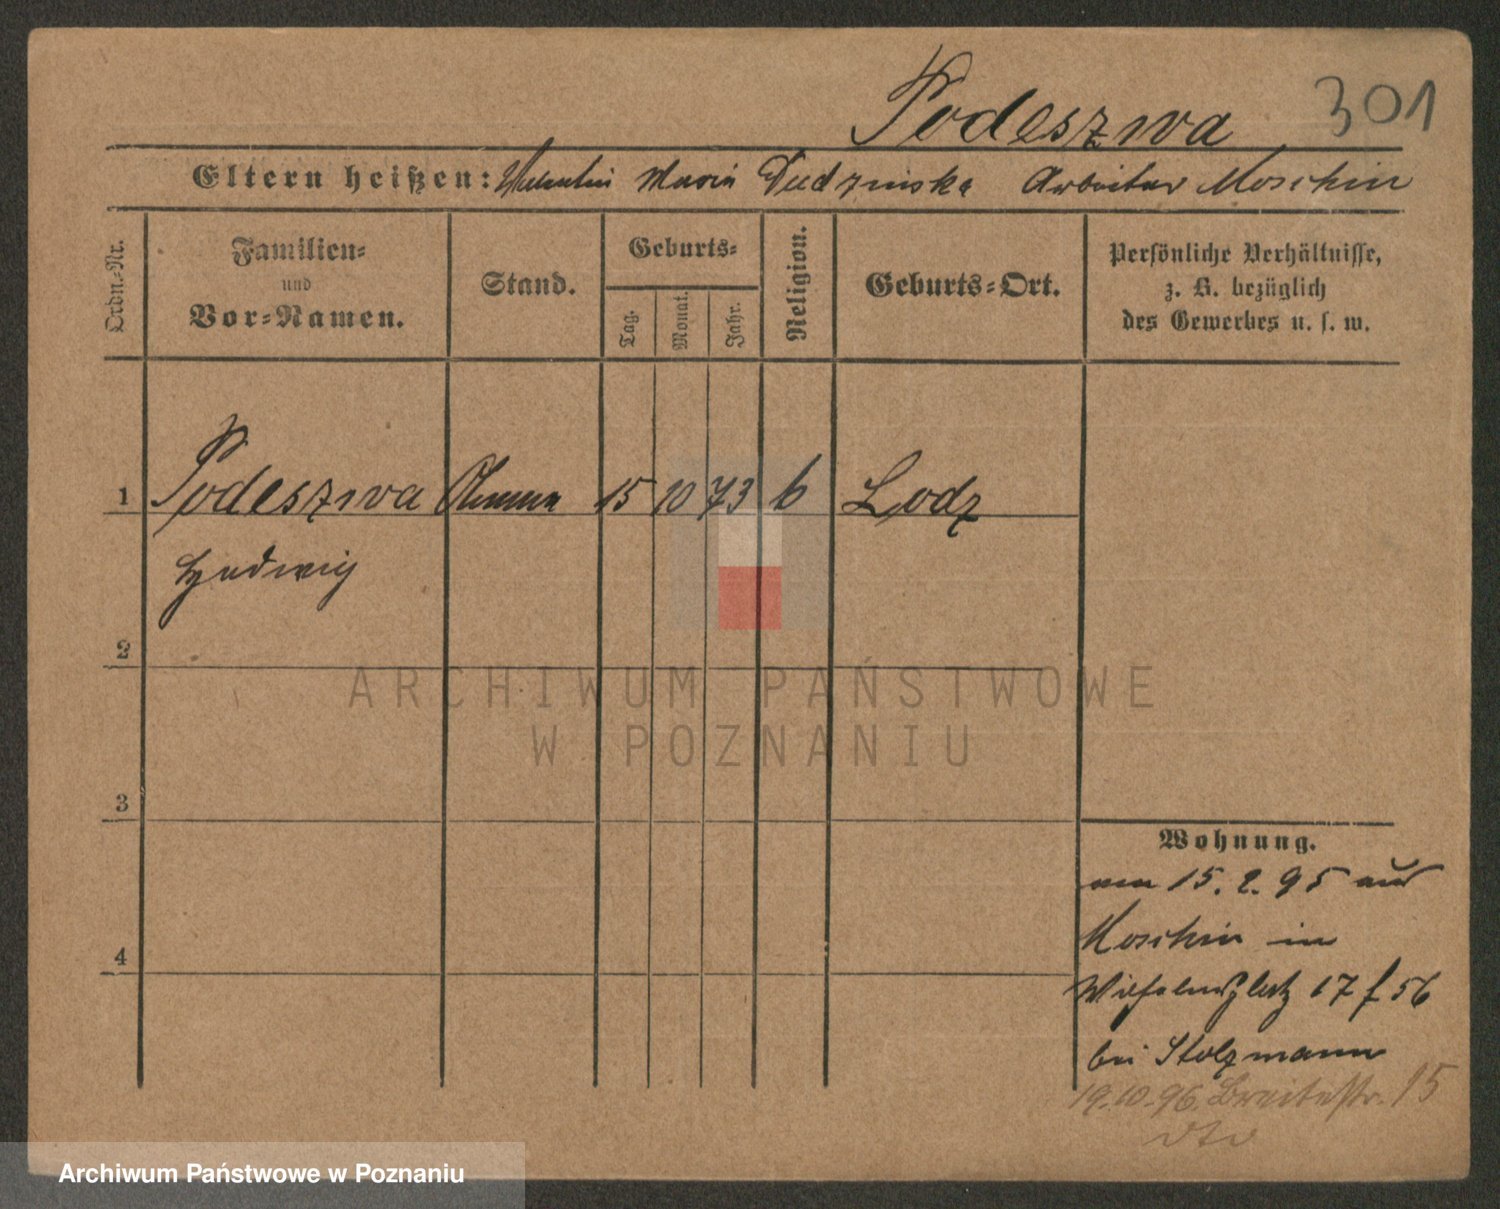 Podeszwa 301
Eltern heißen: Valentin Maria Dudzinska Arbeiter Moschin
Ordn.-Nr.
Familien- und Vor-Namen.
Stand.
Geburts-
Tag.
Monat.
Jahr.
Religion.
Geburts-Ort.
Persönliche Verhältnisse,
z. B. bezüglich
des Gewerbes u. s. w.
1 Podeszwa 15 10 73 Lodz
Hedwig
2
3
4
Wohnung.
am 15. 2. 95 aus
Moschin in
Wilhelmsplatz 17
bei Stolzmann
19.10.96. Breitestr. 15
dto
ARCHIWUM PAŃSTWOWE
W POZNANIU
Archiwum Państwowe w Poznaniu